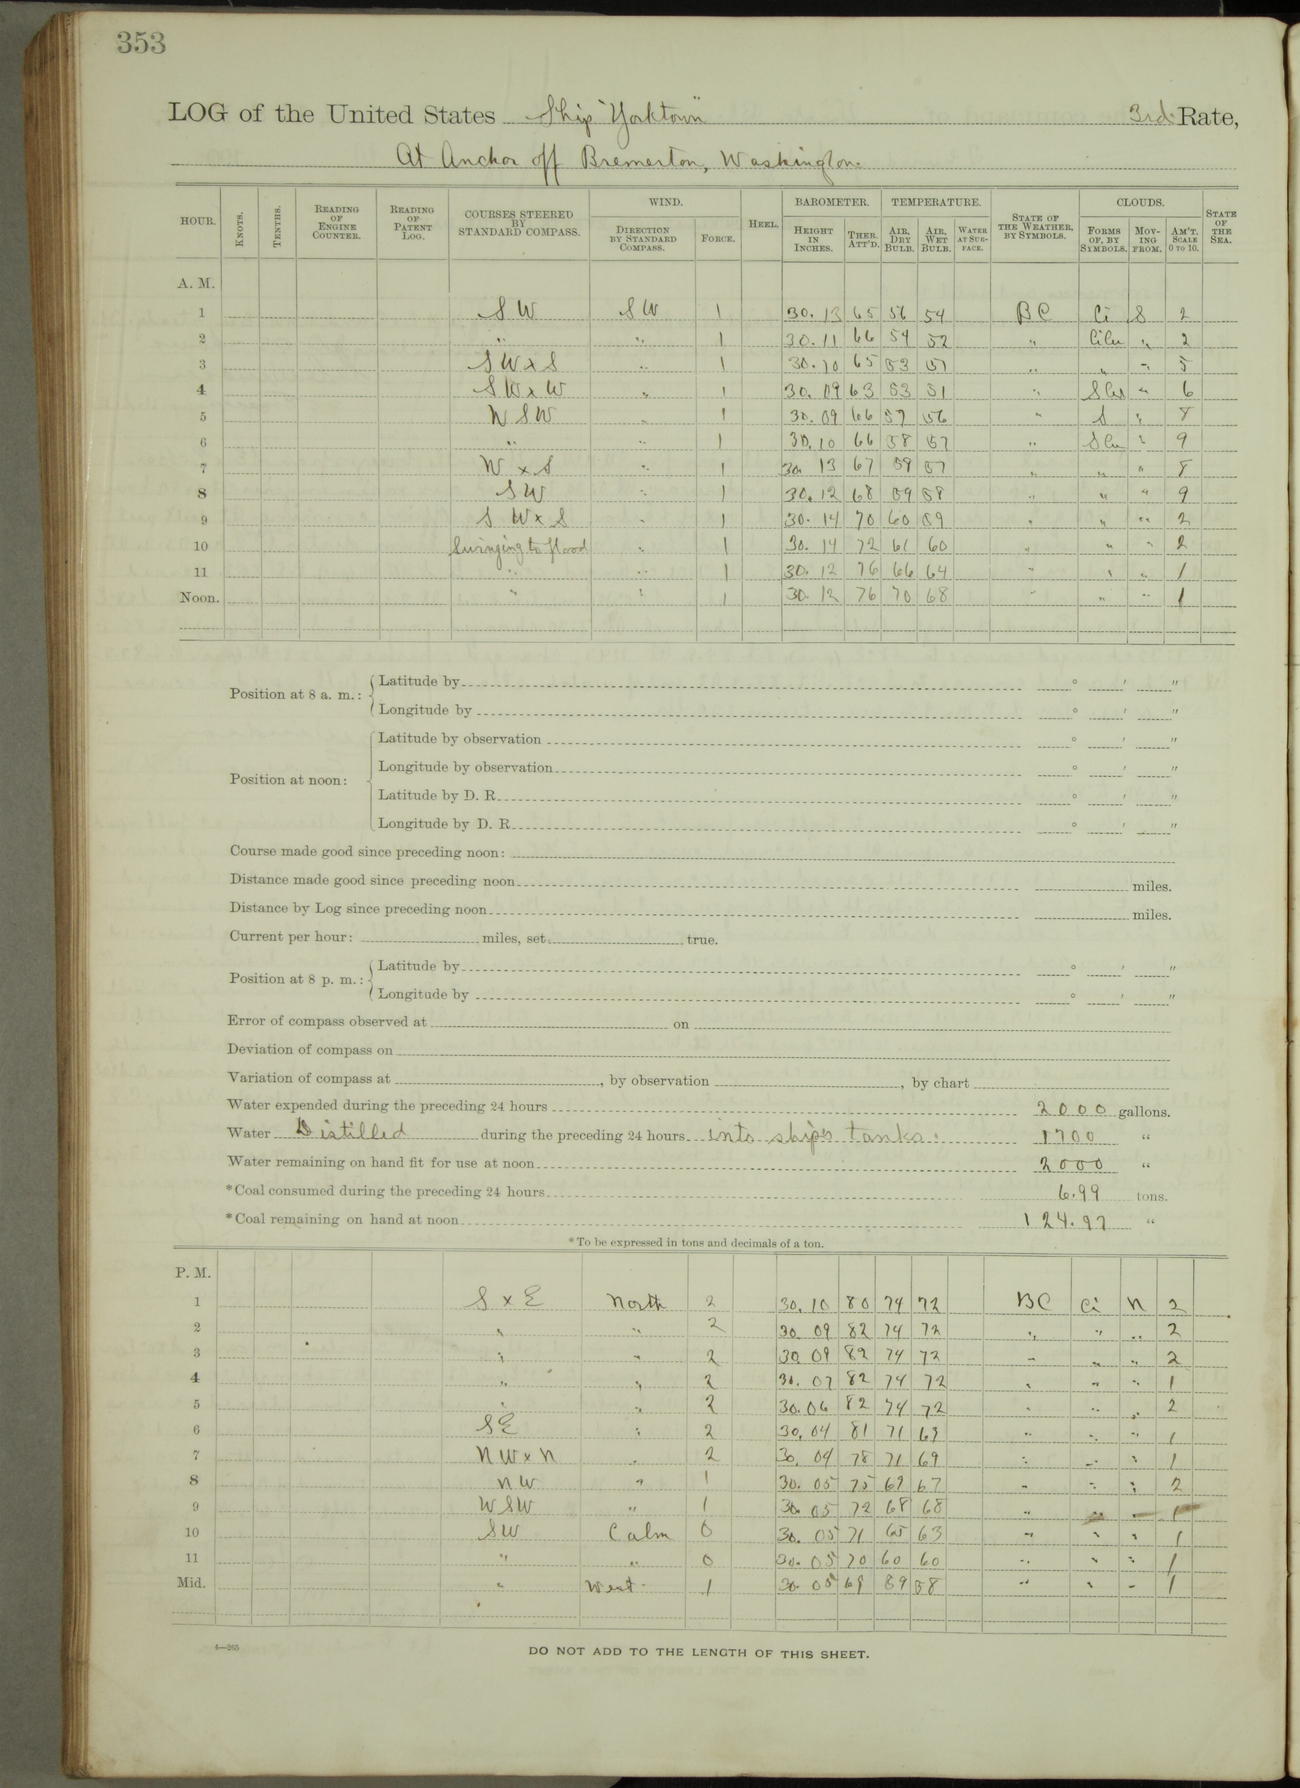 353
LOG of the United States Ship "Yorktown" 3rd Rate,
At Anchor off Bremerton, Washington.
HOUR. KNOTS. TENTHS. READING OF ENGINE COUNTER. READING OF PATENT LOG. COURSES STEERED BY STANDARD COMPASS. WIND. DIRECTION BY STANDARD COMPASS. FORCE. HEEL. BAROMETER. HEIGHT IN INCHES. THER. ATT'D. TEMPERATURE. AIR, DRY BULB. AIR, WET BULB. WATER AT SURFACE. STATE OF THE WEATHER, BY SYMBOLS. CLOUDS. FORMS OF, BY SYMBOLS. MOVING FROM. AM'T. SCALE 0 TO 10. STATE OF THE SEA.
A. M.
1 SW SW 1 30.13 65 56 54 BC Ci S 2
2 " " 1 30.11 66 54 52 " CiCu " 2
3 SWxS " 1 30.10 65 53 51 " " " 5
4 SWxW " 1 30.09 63 53 51 " SCu " 6
5 WSW " 1 30.09 66 57 56 " S " 8
6 " " 1 30.10 66 58 57 " SCu " 9
7 WxS " 1 30.13 67 59 57 " " " 8
8 SW " 1 30.12 68 59 58 " " " 9
9 SWxS " 1 30.14 70 60 59 " " " 2
10 Swinging to flood " 1 30.14 72 61 60 " " " 2
11 " " 1 30.12 76 66 64 " " " 1
Noon. " " 1 30.12 76 70 68 " " " 1
Position at 8 a. m.: Latitude by ° ' "
Longitude by ° ' "
Position at noon: Latitude by observation ° ' "
Longitude by observation ° ' "
Latitude by D. R. ° ' "
Longitude by D. R. ° ' "
Course made good since preceding noon:
Distance made good since preceding noon miles.
Distance by Log since preceding noon miles.
Current per hour: miles, set true.
Position at 8 p. m.: Latitude by ° ' "
Longitude by ° ' "
Error of compass observed at on
Deviation of compass on
Variation of compass at , by observation , by chart
Water expended during the preceding 24 hours 2000 gallons.
Water Distilled during the preceding 24 hours into ship's tanks. 1700 "
Water remaining on hand fit for use at noon 2000 "
*Coal consumed during the preceding 24 hours 6.99 tons.
*Coal remaining on hand at noon 124.97 "
*To be expressed in tons and decimals of a ton.
P. M.
1 SxE North 2 30.10 80 74 72 BC Ci N 2
2 " " 2 30.09 82 74 72 " " " 2
3 " " 2 30.09 82 74 72 " " " 2
4 " " 2 30.07 82 74 72 " " " 1
5 " " 2 30.06 82 74 72 " " " 2
6 SE " 2 30.04 81 71 69 " " " 1
7 NWxN " 2 30.04 78 71 69 " " " 1
8 NW " 1 30.05 75 69 67 " " " 2
9 WSW " 1 30.05 72 68 68 " " " 1
10 SW Calm 0 30.05 71 65 63 " " " 1
11 " " 0 30.05 70 60 60 " " " 1
Mid. " West 1 30.05 69 59 58 " " " 1
4—265
DO NOT ADD TO THE LENGTH OF THIS SHEET.